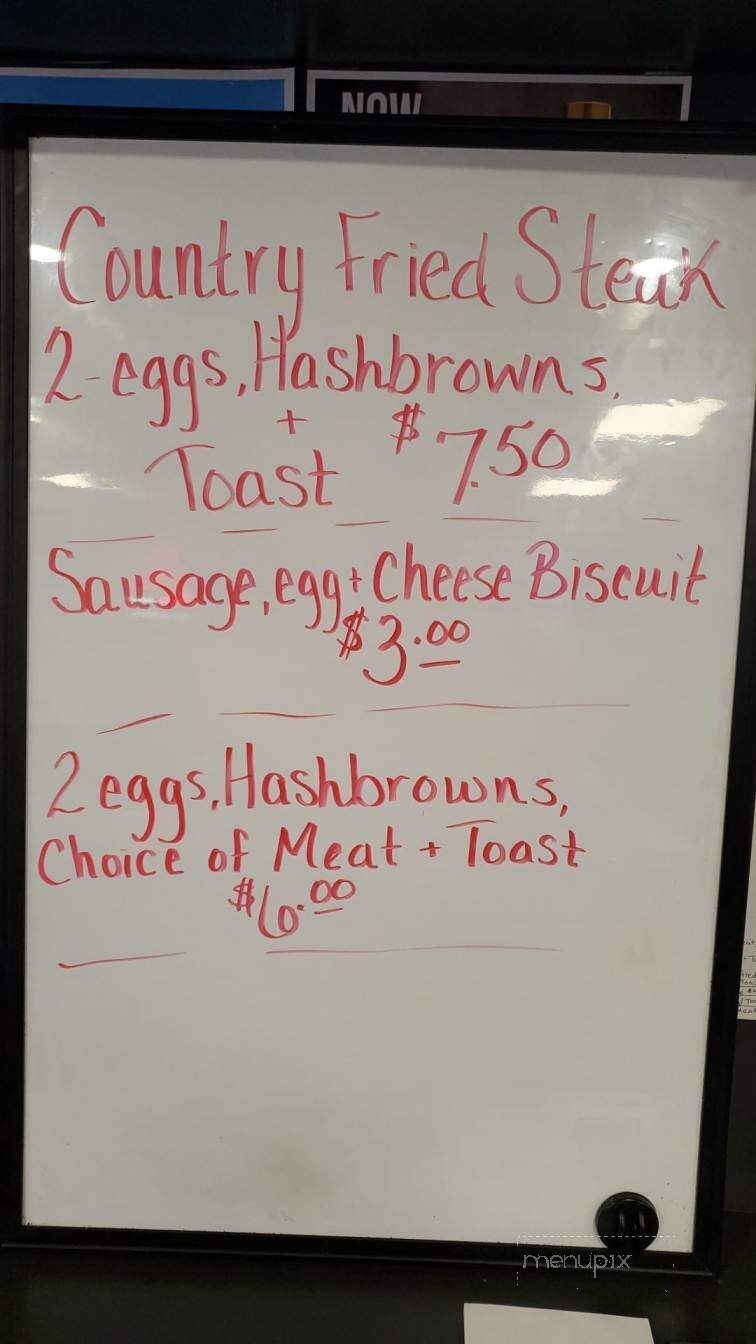 NOW
Country Fried Steak
2-eggs, Hashbrowns,
+
Toast $7.50
Sausage, egg + Cheese Biscuit
$3.00
2 eggs, Hashbrowns,
Choice of Meat + Toast
$6.00
menupix